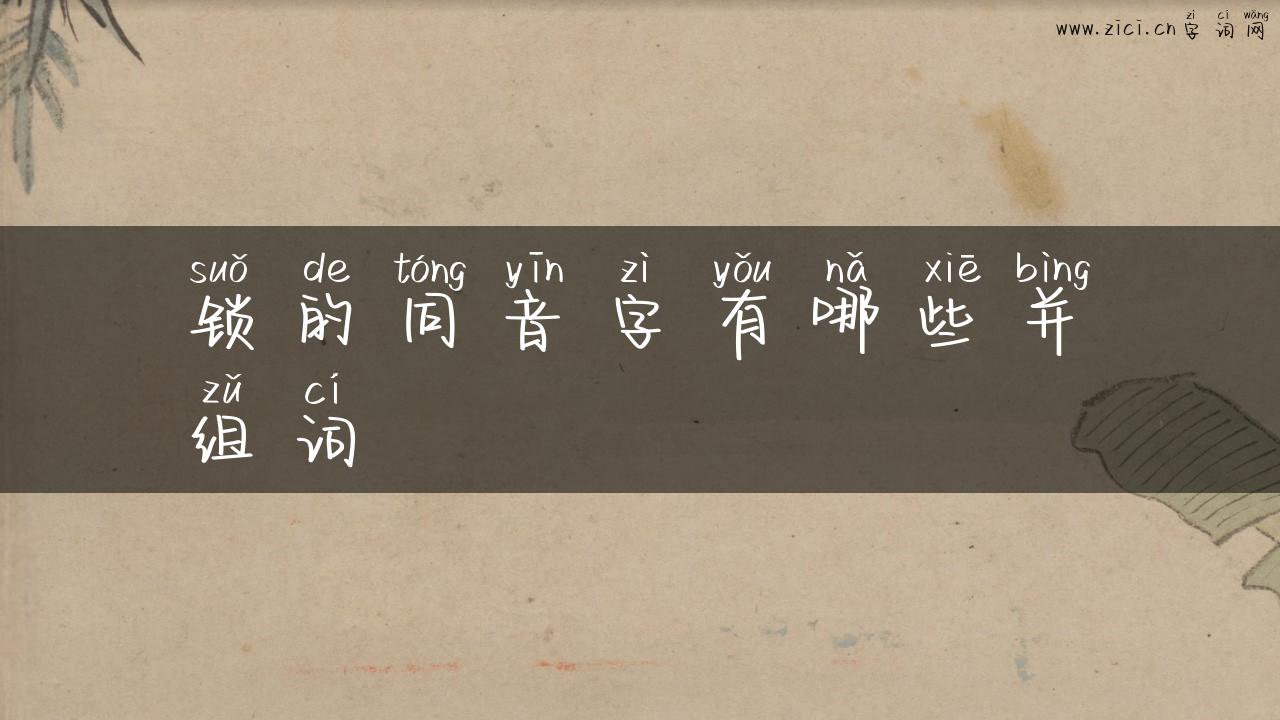 zì cí wǎng
www.zici.cn 字 词 网
suǒ de tóng yīn zì yǒu nǎ xiē bìng
锁 的 同 音 字 有 哪 些 并
zǔ cí
组 词